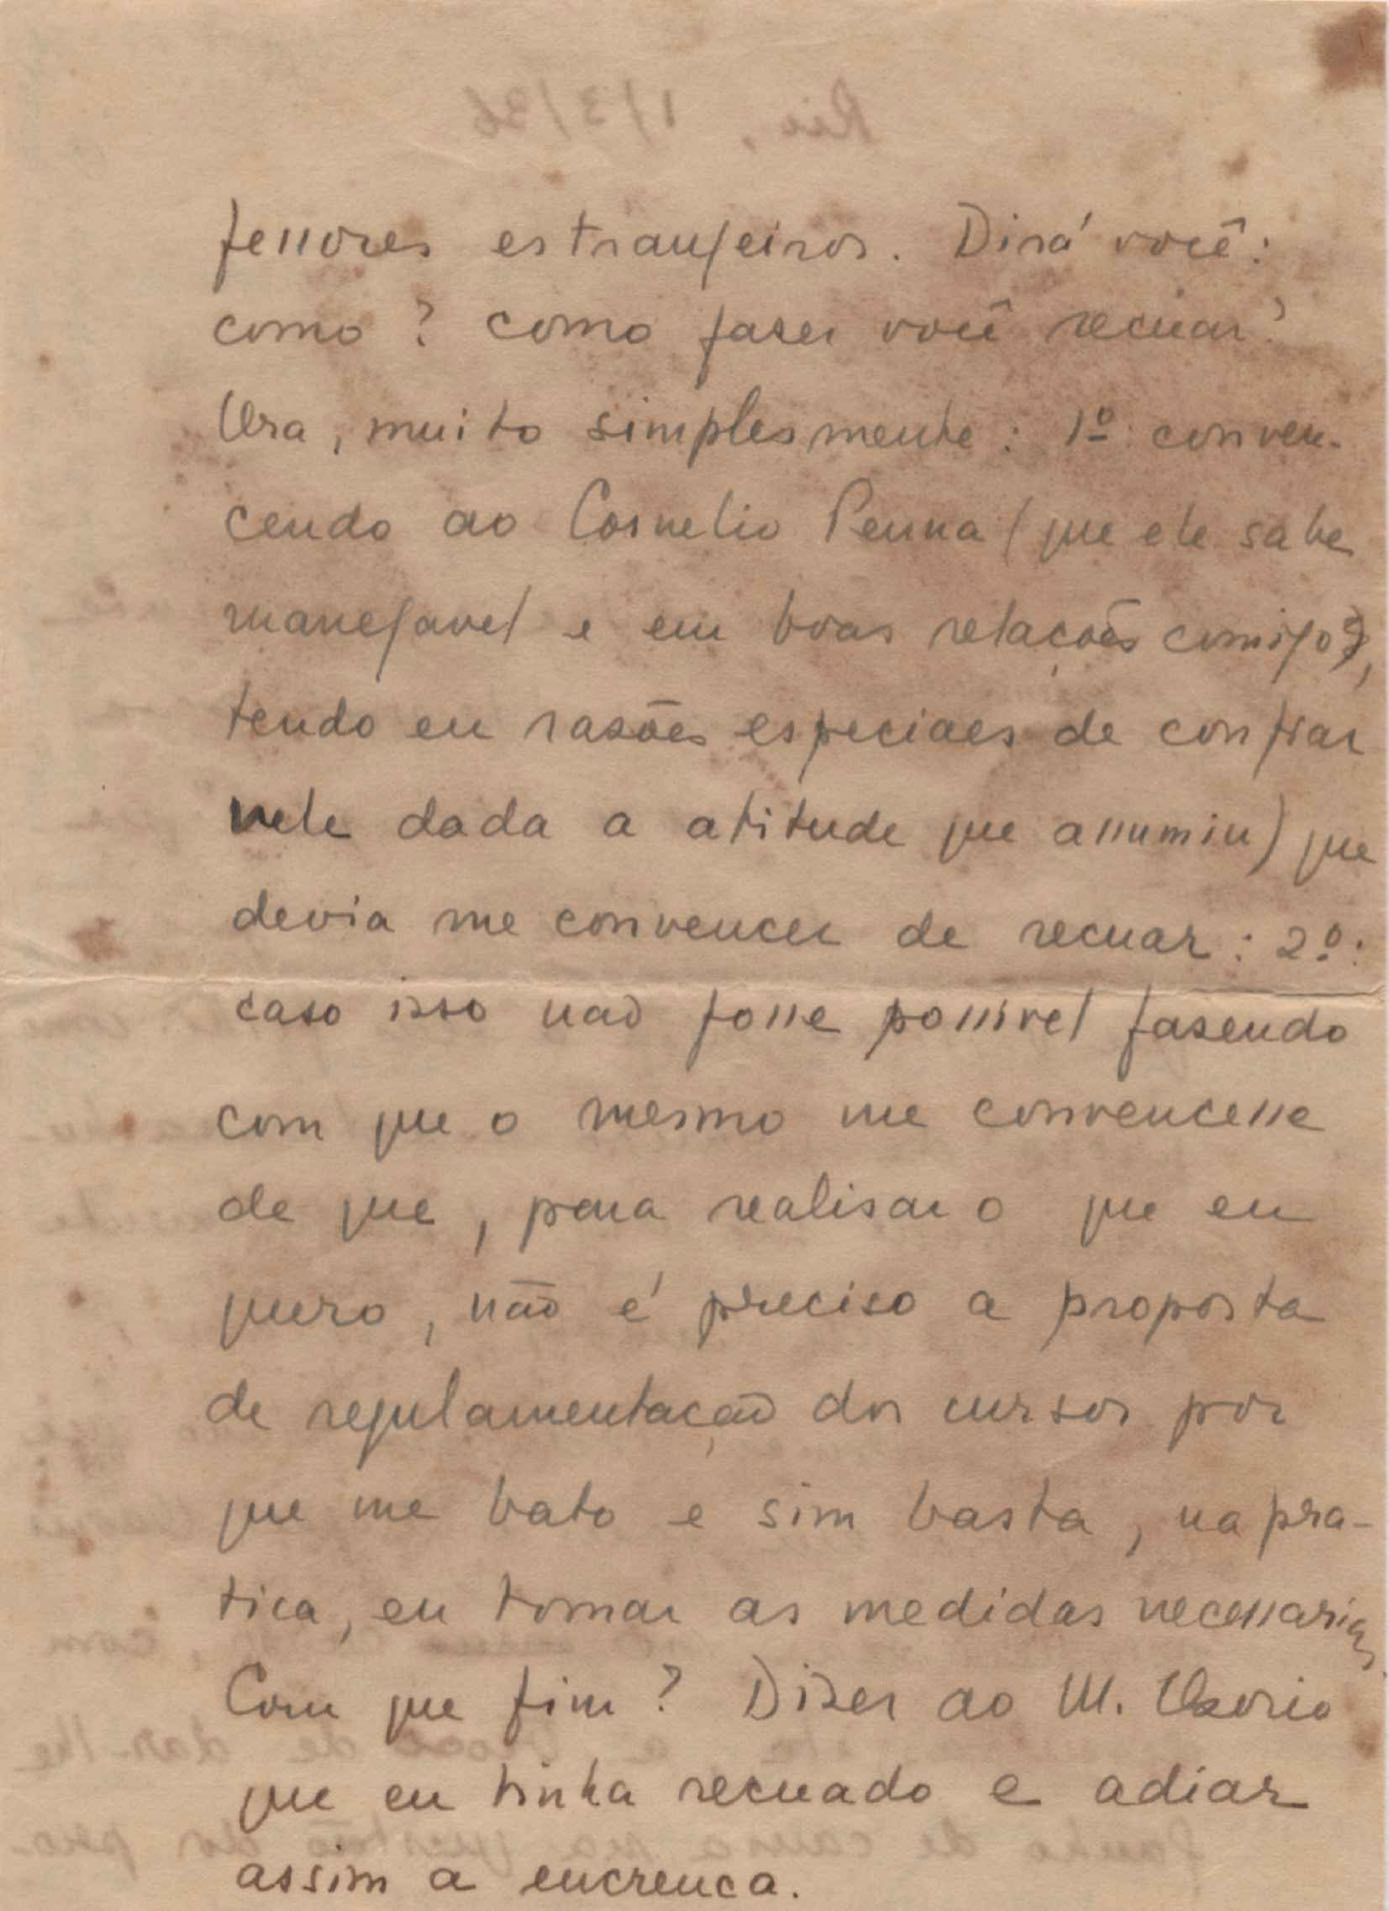 fessores estrangeiros. Dirá você:
como? como faser você recuar?
Ora, muito simplesmente: 1º: conven-
cendo ao Cornelio Penna (que ele sabe
manejavel e em boas relações comigo,
tendo eu rasões especiaes de confiar
nele dada a atitude que assumiu) que
devia me convencer de recuar: 2º:
caso isso não fosse possivel fasendo
com que o mesmo me convencesse
de que, para realisar o que eu
quero, não é preciso a proposta
de regulamentação dos cursos por
que me bato e sim basta, na pra-
tica, eu tomar as medidas necessarias.
Com que fim? Diser ao M. Osorio
que eu tinha recuado e adiar
assim a encrenca.